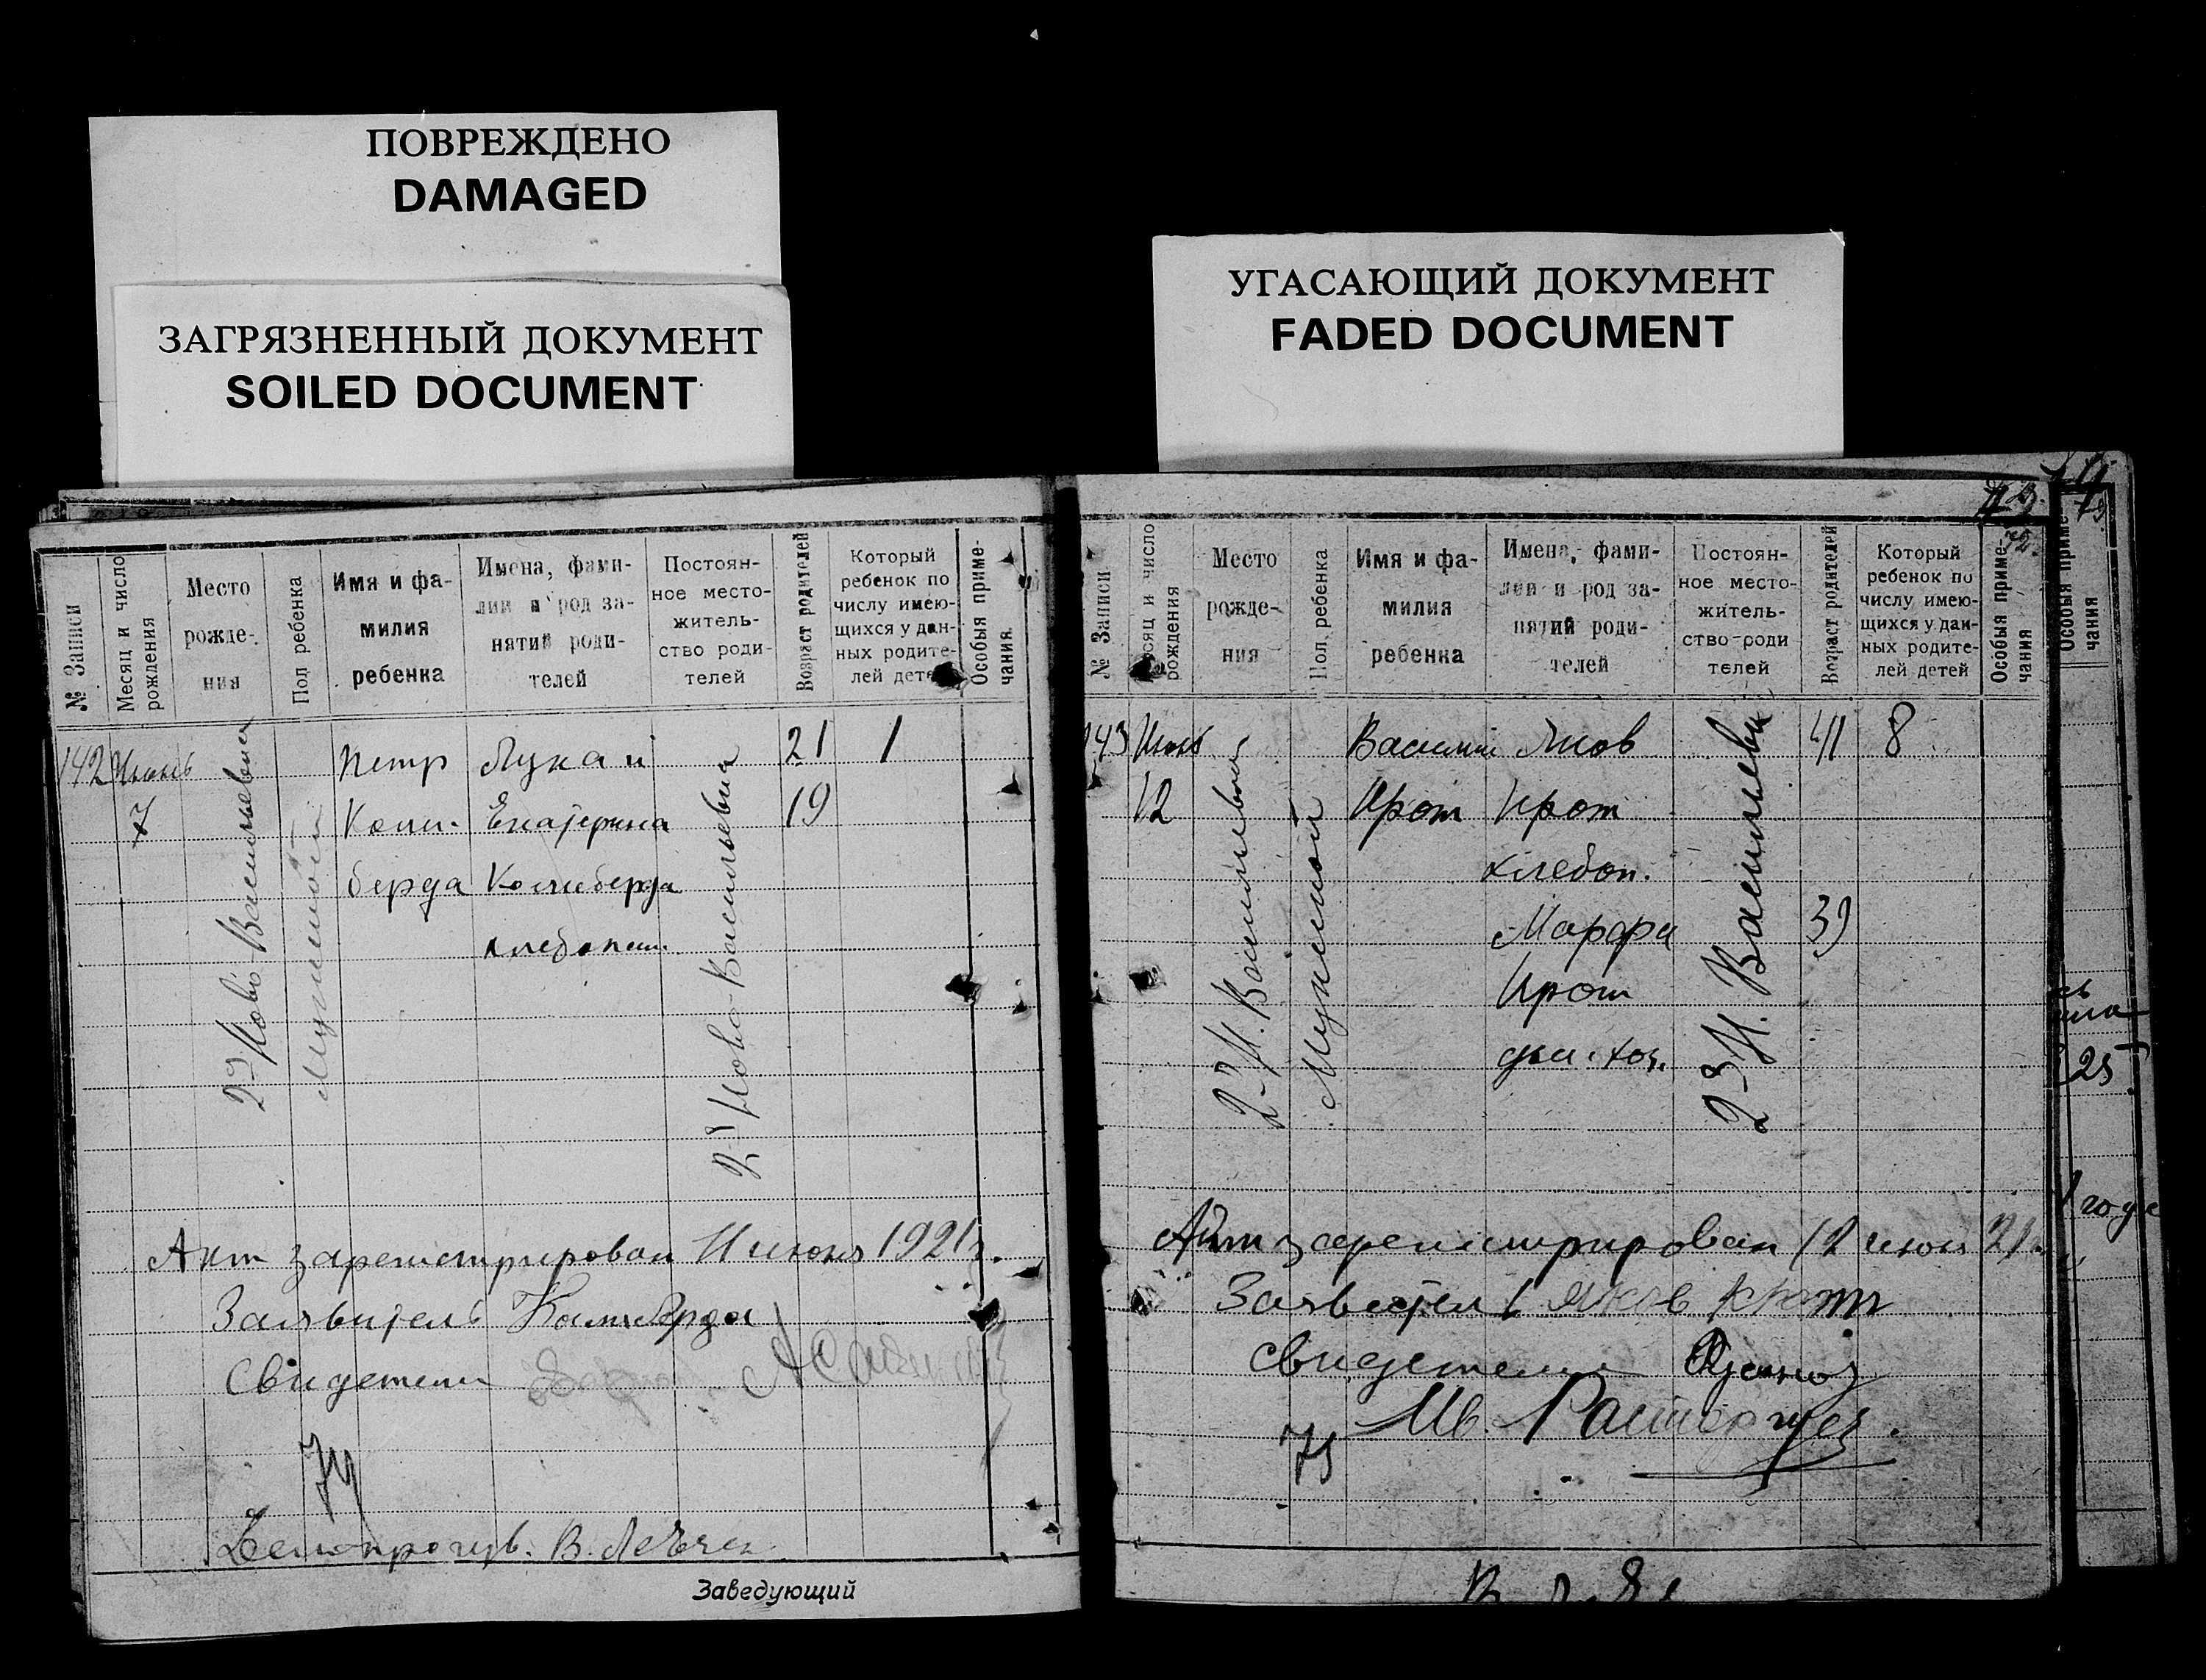 ПОВРЕЖДЕНО
DAMAGED
ЗАГРЯЗНЕННЫЙ ДОКУМЕНТ
SOILED DOCUMENT
УГАСАЮЩИЙ ДОКУМЕНТ
FADED DOCUMENT
№ Записи
Месяц и число
рождения
Место
рожде-
ния
Пол ребенка
Имя и фа-
милия
ребенка
Имена, фами-
лии и род за-
нятий роди-
телей
Постоян-
ное место-
житель-
ство роди-
телей
Возраст родителей
Который
ребенок по
числу имею-
щихся у дан-
ных родите-
лей дете
Особыя приме-
чания
142 Июнь
7
2-й Ново Васильевка
Мужской
Петр
Коли-
берда
Лука и
Екатерина
Колиберда
хлебопаш.
2-й Ново-Васильевка
21
19
1
Акт зарегистрирован 11 июня 1921 г.
Заявитель Колиберда
Свидетели
74
В.
Заведующий
№ Записи
есяц и число
рождения
Место
рожде-
ния
Пол ребенка
Имя и фа-
милия
ребенка
Имена, фами-
лии и род за-
нятий роди-
телей
Постоян-
ное место-
житель-
ство роди
телей
Возраст родителей
Который
ребенок по
числу имею-
щихся у дан-
ных родите-
лей детей
Особыя приме-
чания
143 Июнь
12
2-й Н. Васильевка
Мужской
Василий
Крот
Яков
Крот
хлебоп.
Марфа
Крот
дом. хоз.
2-й Н. Васильевка
41
39
8
Акт зарегистрирован 12 июня 21
Заявитель Яков Крот
Свидетели
Ив. Расторгуев.
75
Особыя приме-
чания
25
годе